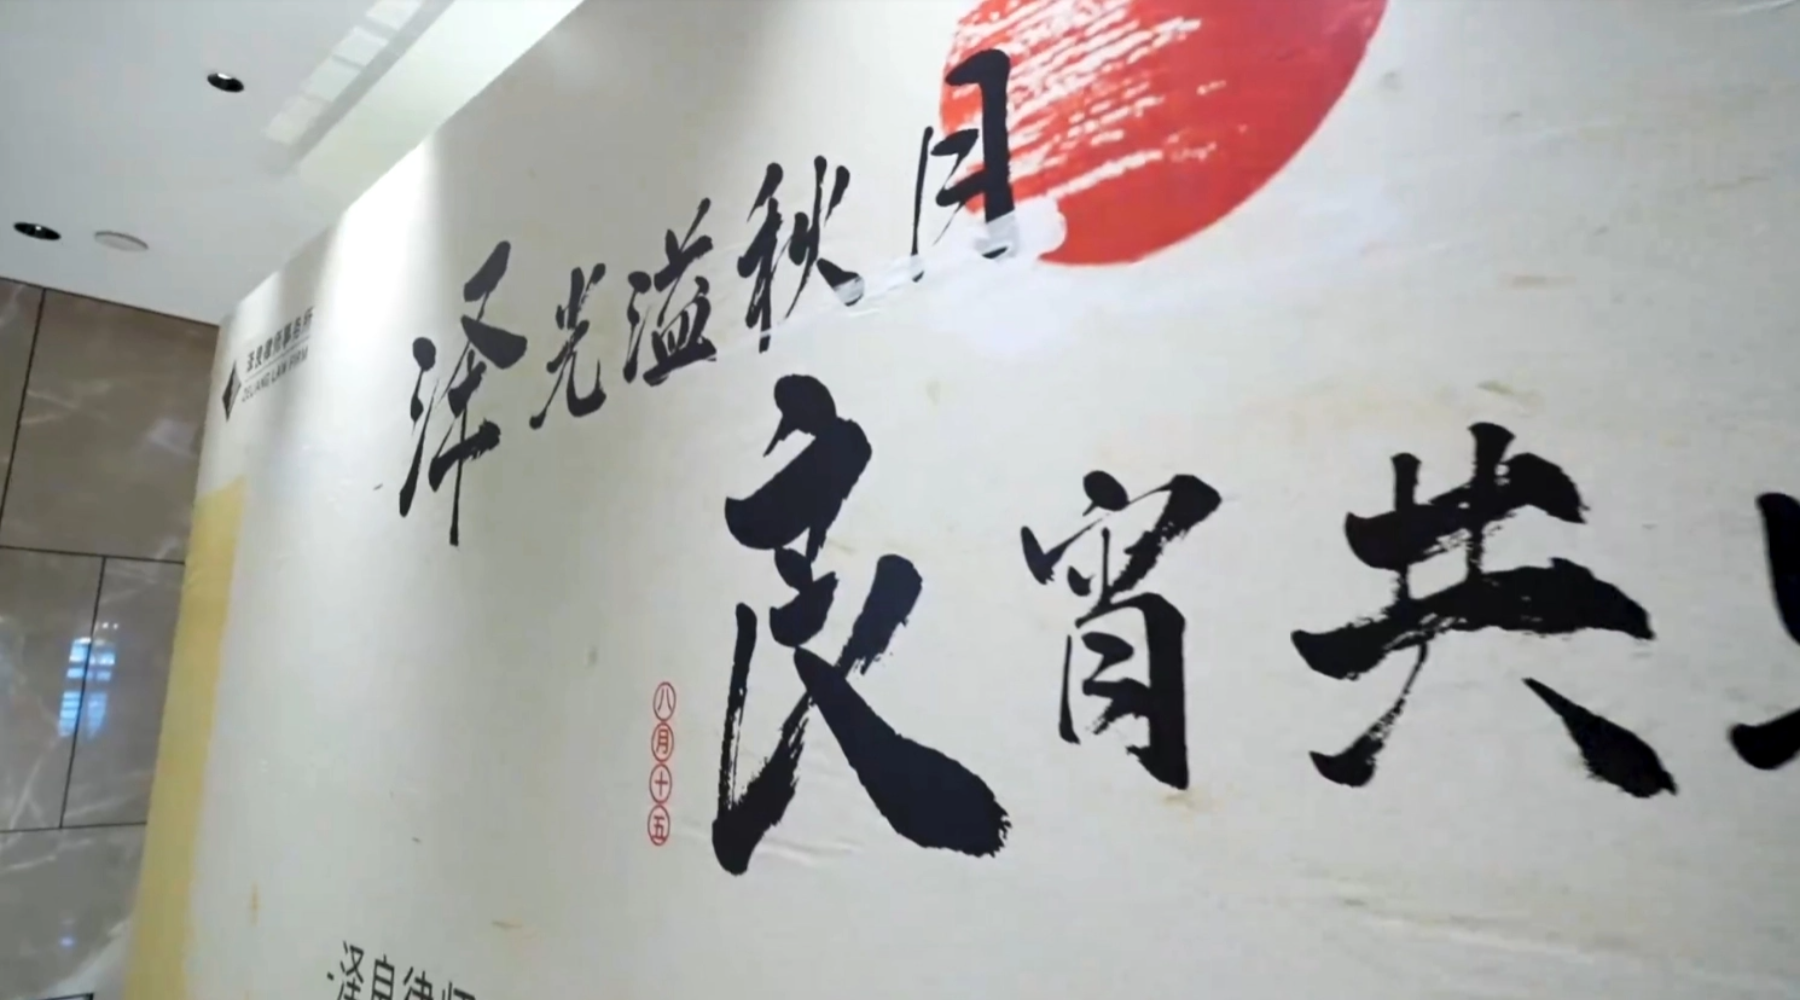 泽良律师事务所
ZELIANG LAW FIRM
泽光溢秋月
良宵共
八月十五
泽良律师